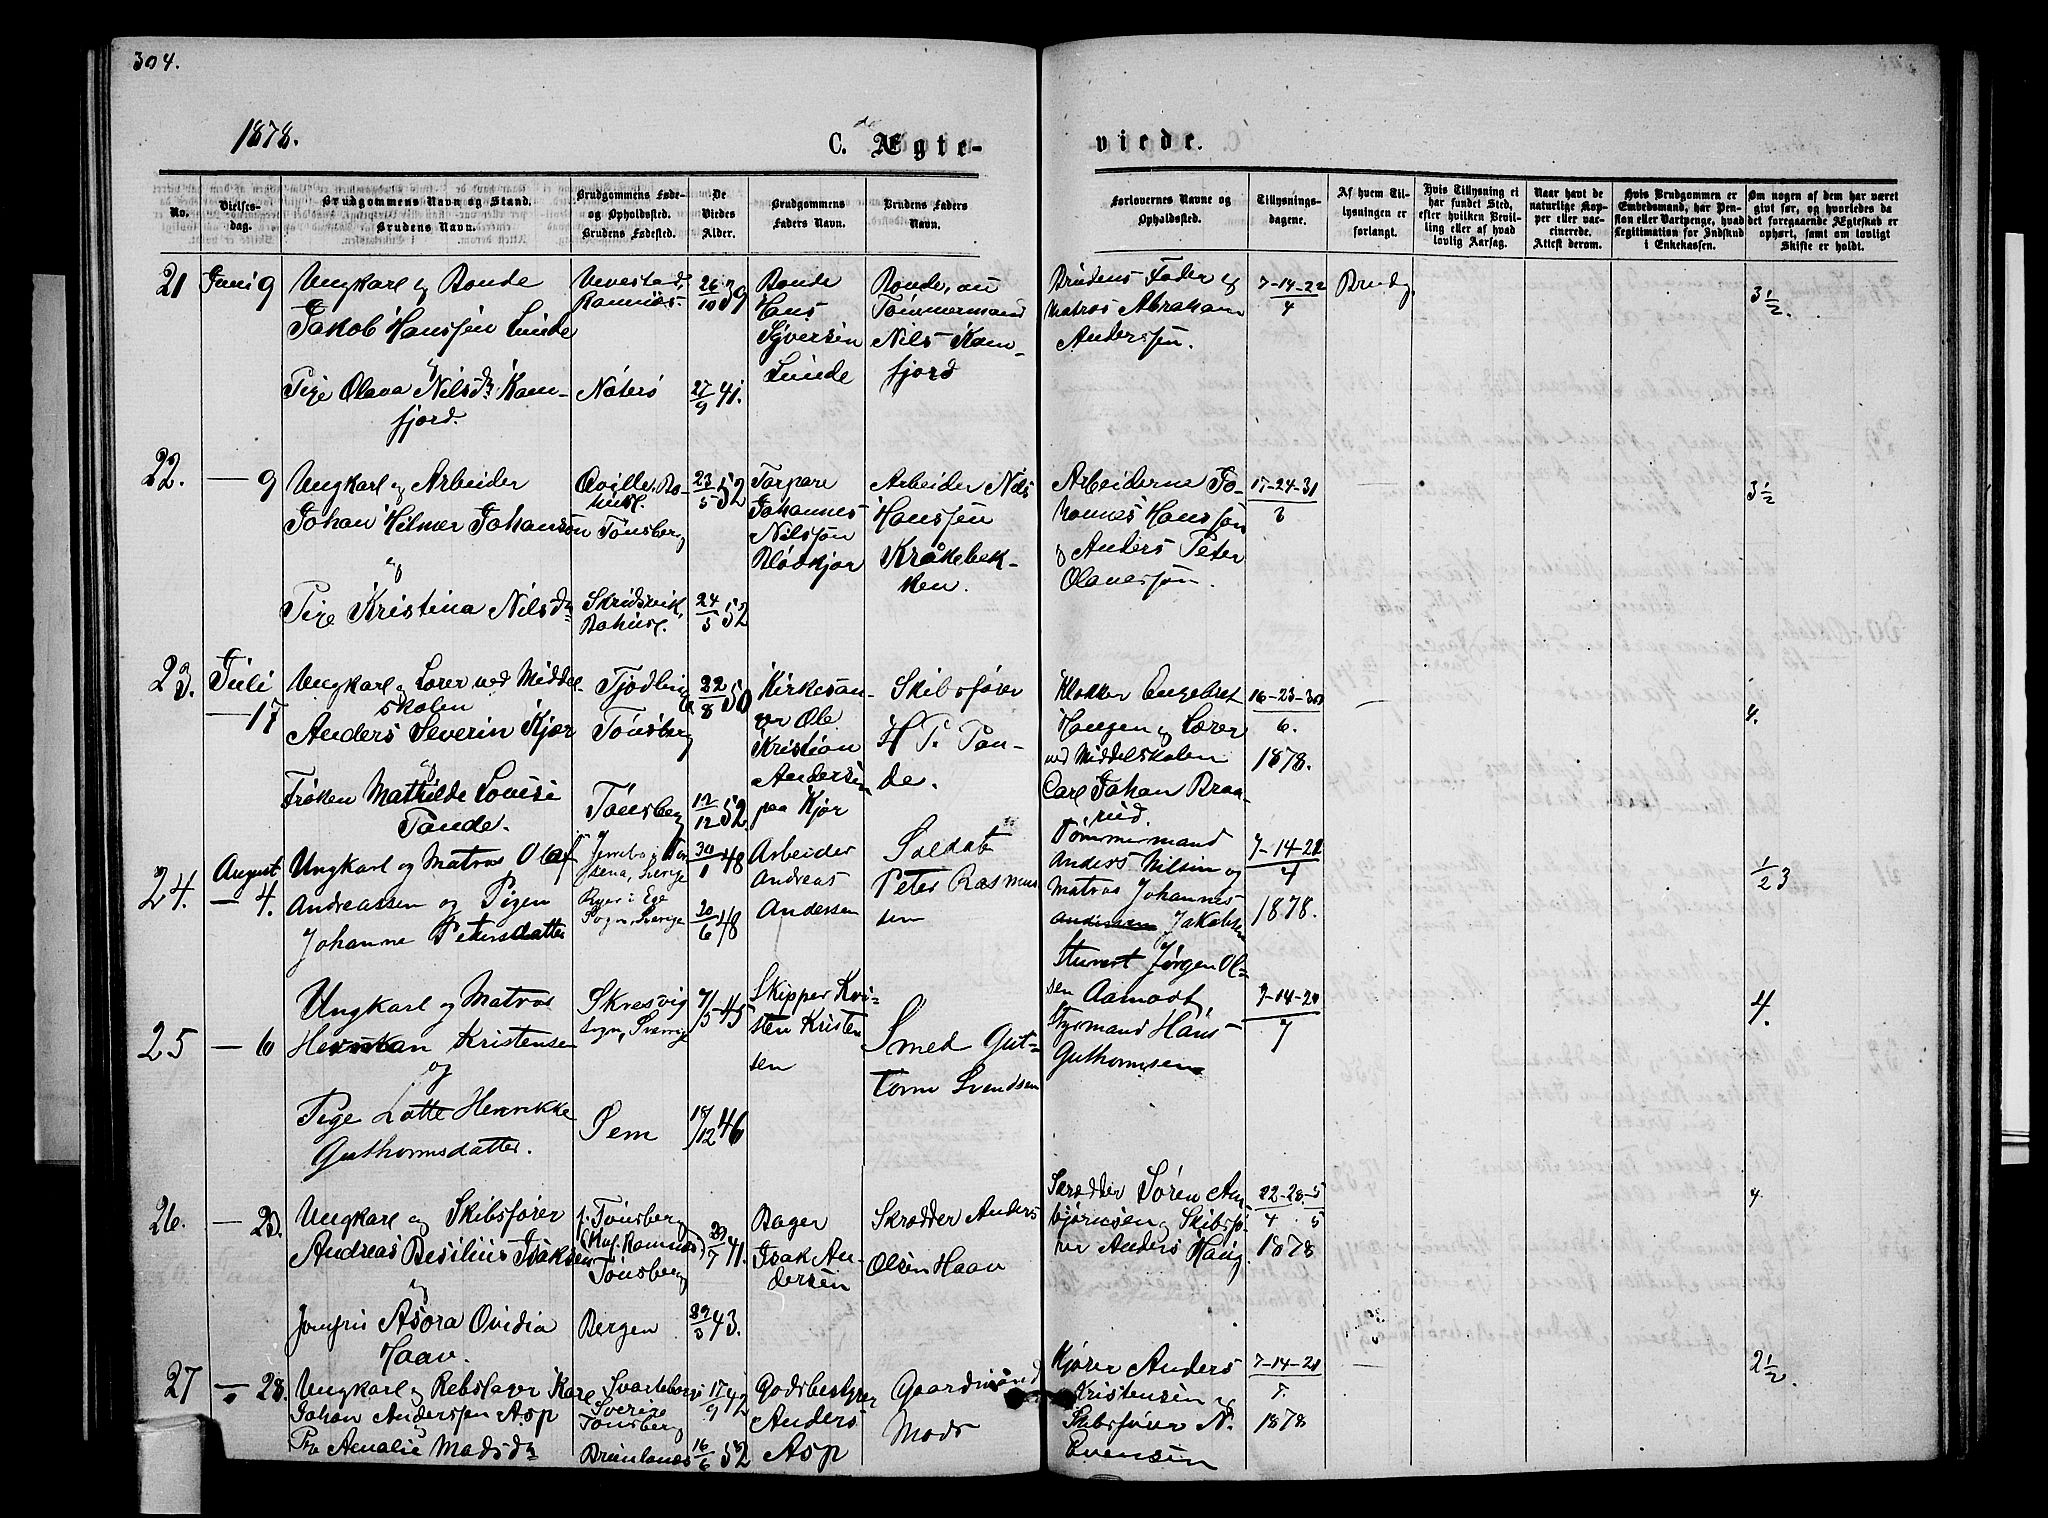 304.
1878.
C. Ægte-
viede.
No.
Vielses-
dag.
Brudgommens Navn og Stand.
Brudens Navn.
Brudgommens Føde-
og Opholdssted.
Brudens Fødested.
De
Viedes
Alder.
Brudgommens
Faders Navn.
Brudens Faders
Navn.
Forlovernes Navne og
Opholdssted.
Tillysnings-
dagene.
Af hvem Til-
lysningen er
forlangt.
Hvis Tillysning ei
har fundet Sted,
efter hvilken Bevil-
ling eller af hvad
lovlig Aarsag.
Naar havt de
naturlige Kop-
per eller vac-
cinerede.
Attest derom.
Hvis Brudgommen er
Embedsmand, har Pen-
sion eller Vartpenge, hvad
Legitimation for Indskud
i Enkekassen.
Om nogen af dem har været
gift før, og hvorledes da
det foregaaende Ægteskab er
ophørt, samt om lovligt
Skifte er holdt.
21
Juni 9
Ungkarl og Bonde
Jakob Hanssen Linde
og
Pige Olava Nilsdr. Kam-
fjord.
Ramnæs.
Nøterø
26/10 39
27/9 41.
Bonde
Hans
Syversen
Linde
Bonde, nu
Tømmermand
Nils Kam-
fjord
Brudens Fader og
Matros Abraham
Anderssen.
7-14-22
4
Brudg.
3 1/2.
22.
— 9
Ungkarl og Arbeider
Johan Hilmer Johanson
og
Pige Kristina Nilsdr
Qville, Bo-
husl.
Tønsberg
Skredsvik,
Bohusl.
23/5 52
24/5 52
Torpare
Johannes
Nilsson
Blåvkjær
Arbeider Nils
Hanssen
Kråkebek-
ken.
Arbeiderne Jo-
hannes Hansson
og Anders Peter
Olavessøn.
17-24-31
3
3 1/2
23.
Juli
— 17
Ungkarl og Lærer ved Middel-
skolen
Anders Severin Kjær
og
Frøken Mathilde Lovise
Tande.
Tjødling
Tønsberg
Tønsberg
22/8 50
12/12 52
Kirkesan-
ger Ole
Kristian
Andersen
paa Kjær
Skibsfører
H. P. Tan-
de.
Klokker Engebret
Haugen og Lærer
ved Middelskolen
Carl Johan Braa-
rud.
16-23-30
6.
1878.
4.
24.
August
— 4.
Ungkarl og Matros Olaf
Andreassen og Pigen
Johanne Petersdatter
Sogn, Sverige
30/1 48
20/6 48
Arbeider
Andreas
Andersen
Soldat
Peter Rasmus
sen
Tømmermand
Anders Nilsen og
Matros Johannes
Andersen Jakobsen
7-14-21
4
1878.
1/2 3
25
— 6
Ungkarl og Matros
Herman Kristensen
og
Pige Lotte Henrikke
Guthormsdatter.
Skresvig
sogn, Sverrige
Sem
7/5-45
18/12 46
Skipper Kri-
sten Kristen
sen
Smed Gut-
torm Svendsen
Stuert Jørgen Ol-
sen Aamodt,
Styrmand Hans
Guthormsen
7-14-21
7
4.
26.
— 23.
Ungkarl og Skibsfører
Andreas Besilius Isaksen
og
Jomfru Asora Ovidia
Haav.
f. Tønsberg
Tønsberg
Bergen
29/7 41.
29/3 43.
Bager
Isak An-
dersen
Skrædder Anders
Olsen Haav
Skrædder Sören Am
bjørnsen og Skibsfø-
rer Anders Haug.
22-28-5
4 5
1878
4.
27
— 28.
Ungkarl og Rebslager Karl
Johan Anderssen Asp
Pge Amalie Madsdr
Svarteborg
Sverige
Tønsberg
Brunlanes
17/9 42
16/6 52
Godsbestyrer
Anders
Asp
Gaardmand
Mads
Kjører Anders
Kristensen og
Skibsfører N.
Evensen
7-14-21
7.
1878
2 1/2.